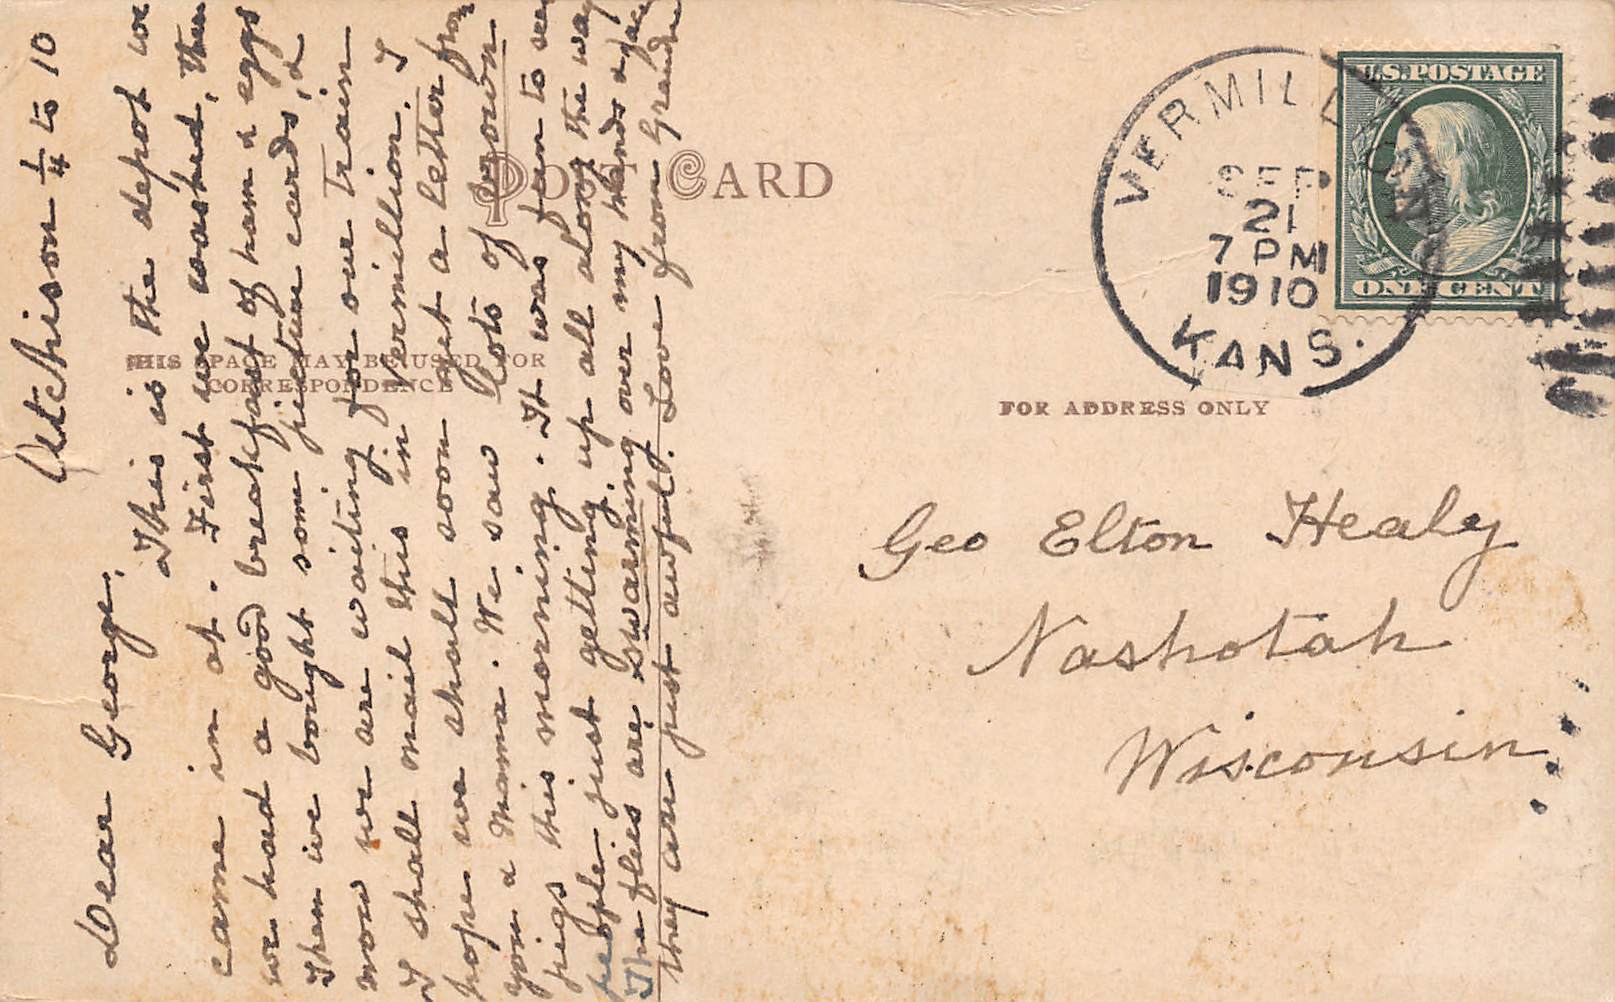 Atchison 1/4 to 10
Dear George,
This is the depot we
came in at. First we washed, then
we had a good breakfast of ham & eggs
Then we bought some picture cards, &
now we are waiting for our train
I shall mail this in Vermillion. I
hope we shall soon get a letter from
you & Mama. We saw lots of brown
pigs this morning. It was fun to see
people just getting up all along the way
The flies are swarming over my hands & face
they are just awful. Love from Grandma
POST CARD
THIS SPACE MAY BE USED FOR
CORRESPONDENCE
FOR ADDRESS ONLY
VERMILLION
SEP
21
7 PM
1910
KANS.
U.S. POSTAGE
ONE CENT
Geo Elton Healy
Nashotah
Wisconsin